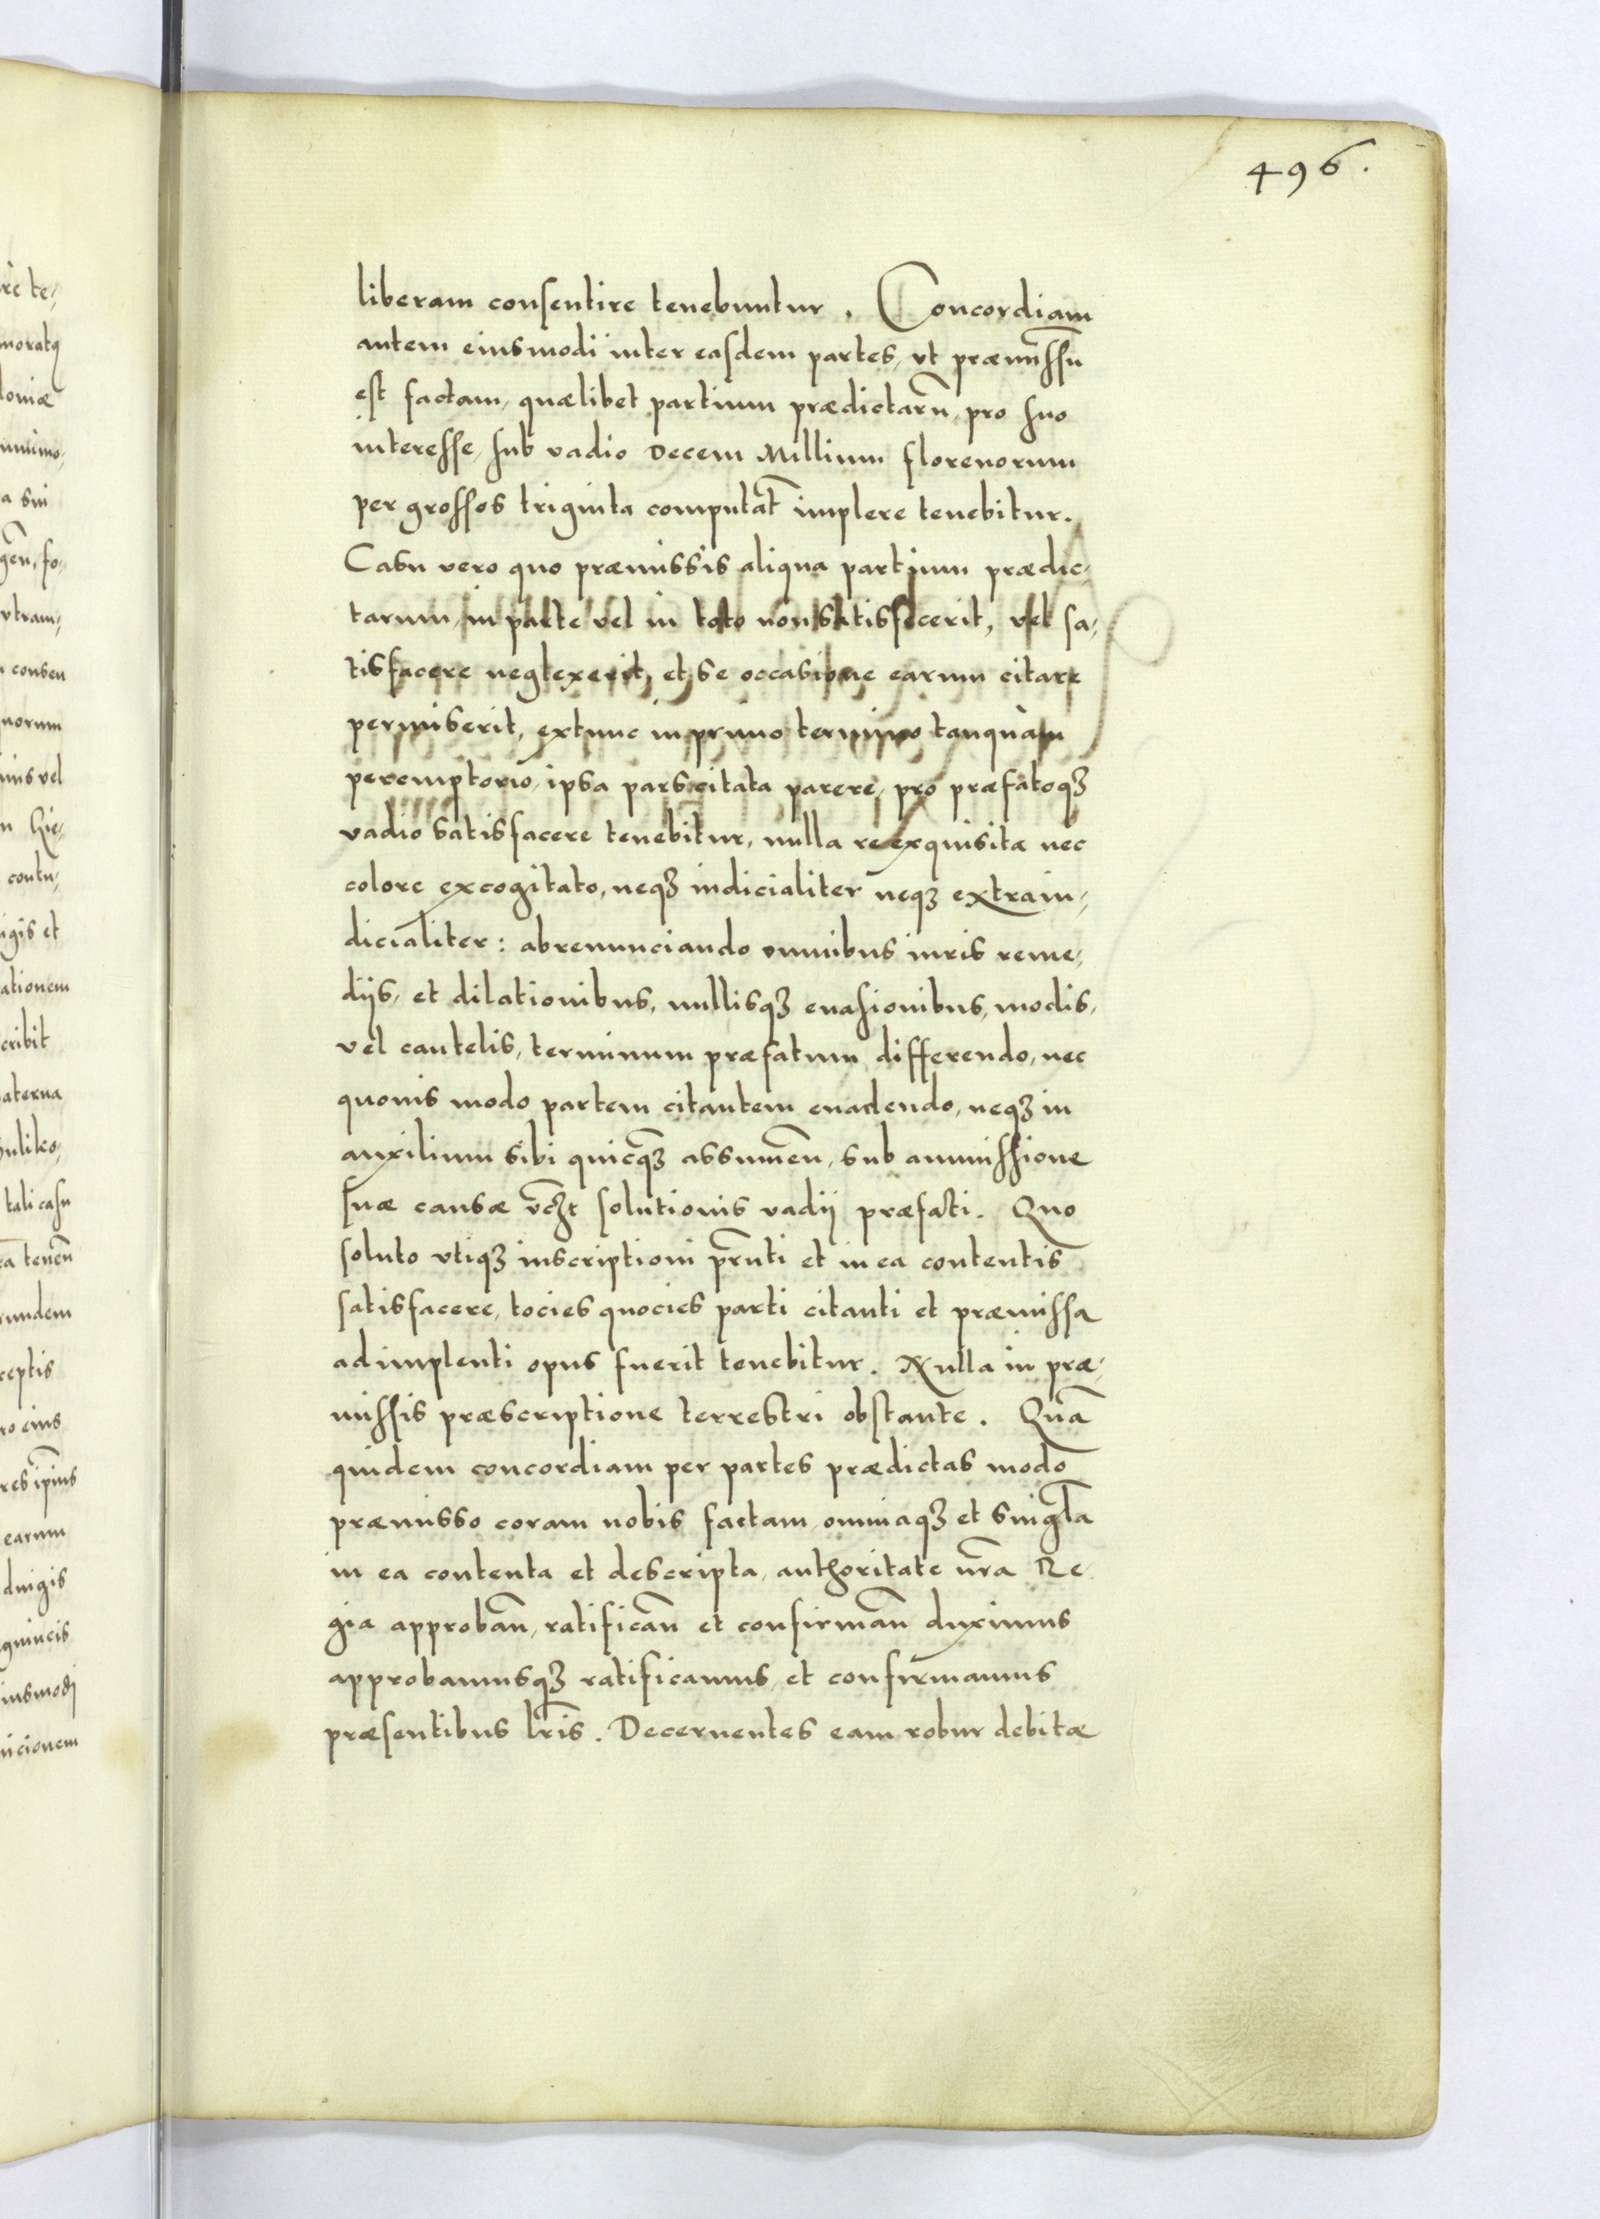 496.
liberam consentire tenebuntur. Concordiam
autem eiusmodi inter easdem partes, vt præmissũ
est factam, quælibet partium prædictarũ, pro suo
interesse, sub vadio Decem Millium florenorum
per grossos triginta computat̃ implere tenebitur.
Casu vero quo præmissis aliqua partium prædic,
tarum, in parte vel in toto non satisfecerit, vel sa,
tisfacere neglexerit, et se occasione earum citare
permiserit, extunc in primo termino tanquàm
peremptorio, ipsa pars citata parere, pro præfatoqꝫ
vadio satisfacere tenebitur, nulla re exquisita nec
colore excogitato, neqꝫ iudicialiter neqꝫ extraiu,
dicialiter: abrenunciando omnibus iuris reme,
diis, et dilationibus, nullisqꝫ euasionibus, modis,
vel cautelis, terminum præfatum differendo, nec
quouis modo partem citantem euadendo, neqꝫ in
auxilium sibi quicq̃ꝫ assumeñ, sub ammissione
suæ causæ vcꝫ̃t solutionis vadii præfati. Quo
soluto vtiqꝫ inscriptioni prñti et in ea contentis
satisfacere, tocies quocies parti citanti et præmissa
adimplenti opus fuerit tenebitur. Nulla in præ,
missis præscriptione terrestri obstante. Quã
quidem concordiam per partes prædictas modo
præmisso coram nobis factam, omniaqꝫ et singl̃a
in ea contenta et descripta, authoritate nr̃a Re,
gia approbañ, ratificañ et confirmañ duximus
approbamusqꝫ ratificamus, et confirmamus
præsentibus lr̃is. Decernentes eam robur debitæ